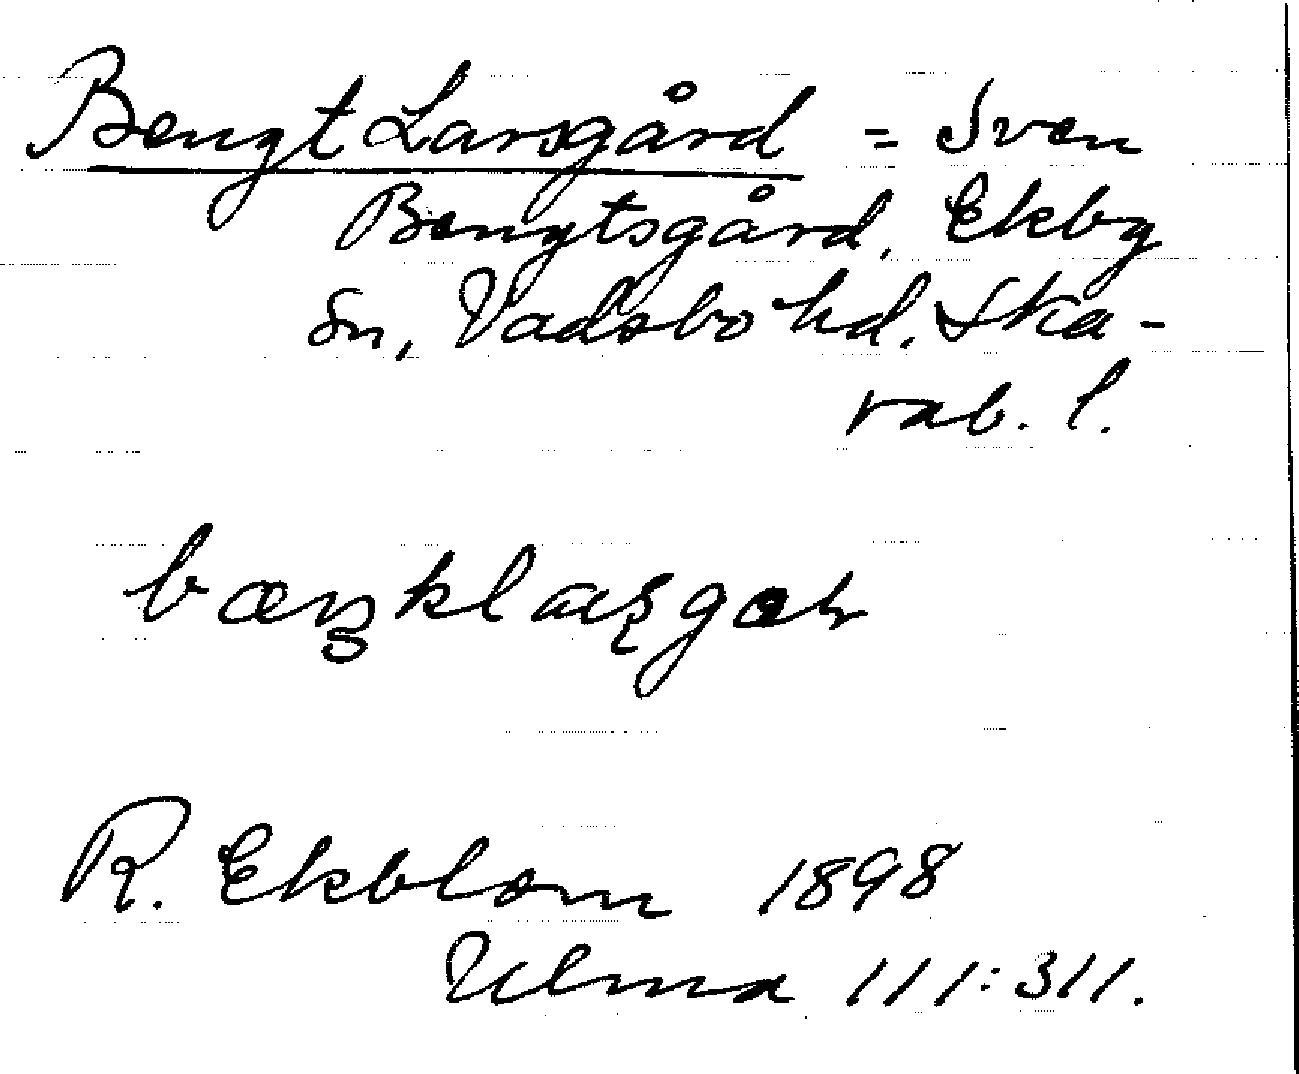 Bengt Larsgård = Sven
Bengtsgård, Ekby
sn, Vadsbo hd. Ska-
rab. l.
R. Ekblom 1898
Ulma 111:311.